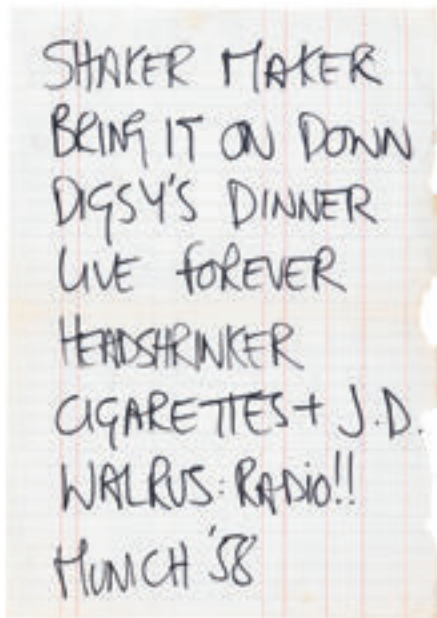 SHAKER MAKER
BRING IT ON DOWN
DIGSY'S DINNER
LIVE FOREVER
HEADSHRINKER
CIGARETTES + J.D.
WALRUS: RADIO!!
MUNICH '58